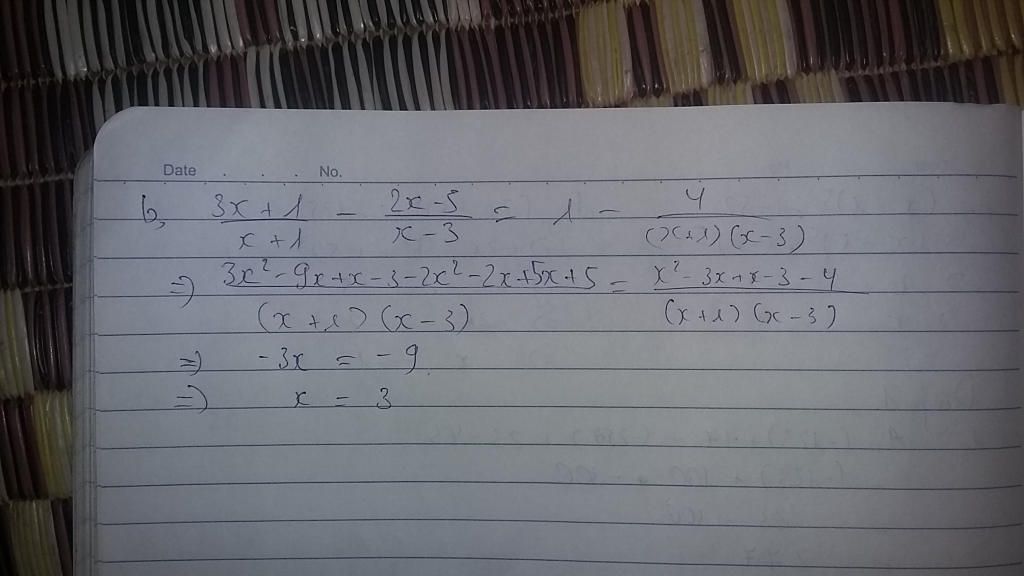 Date . . . No.
b, (3x + 1)/(x + 1) - (2x - 5)/(x - 3) = 1 - 4/((x+1)(x-3))
=> (3x² - 9x + x - 3 - 2x² - 2x + 5x + 5)/((x+1)(x-3)) = (x² - 3x + x - 3 - 4)/((x+1)(x-3))
=> -3x = -9
=> x = 3